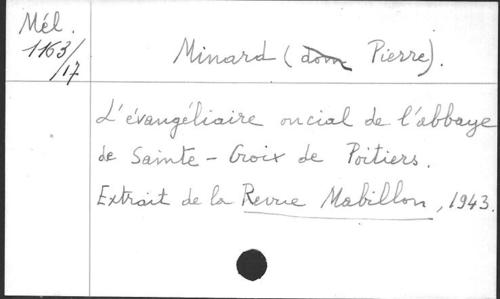 Mél.
1163/17
Minard (dom Pierre).
L'évangéliaire oncial de l'abbaye
de Sainte-Croix de Poitiers.
Extrait de la Revue Mabillon, 1943.